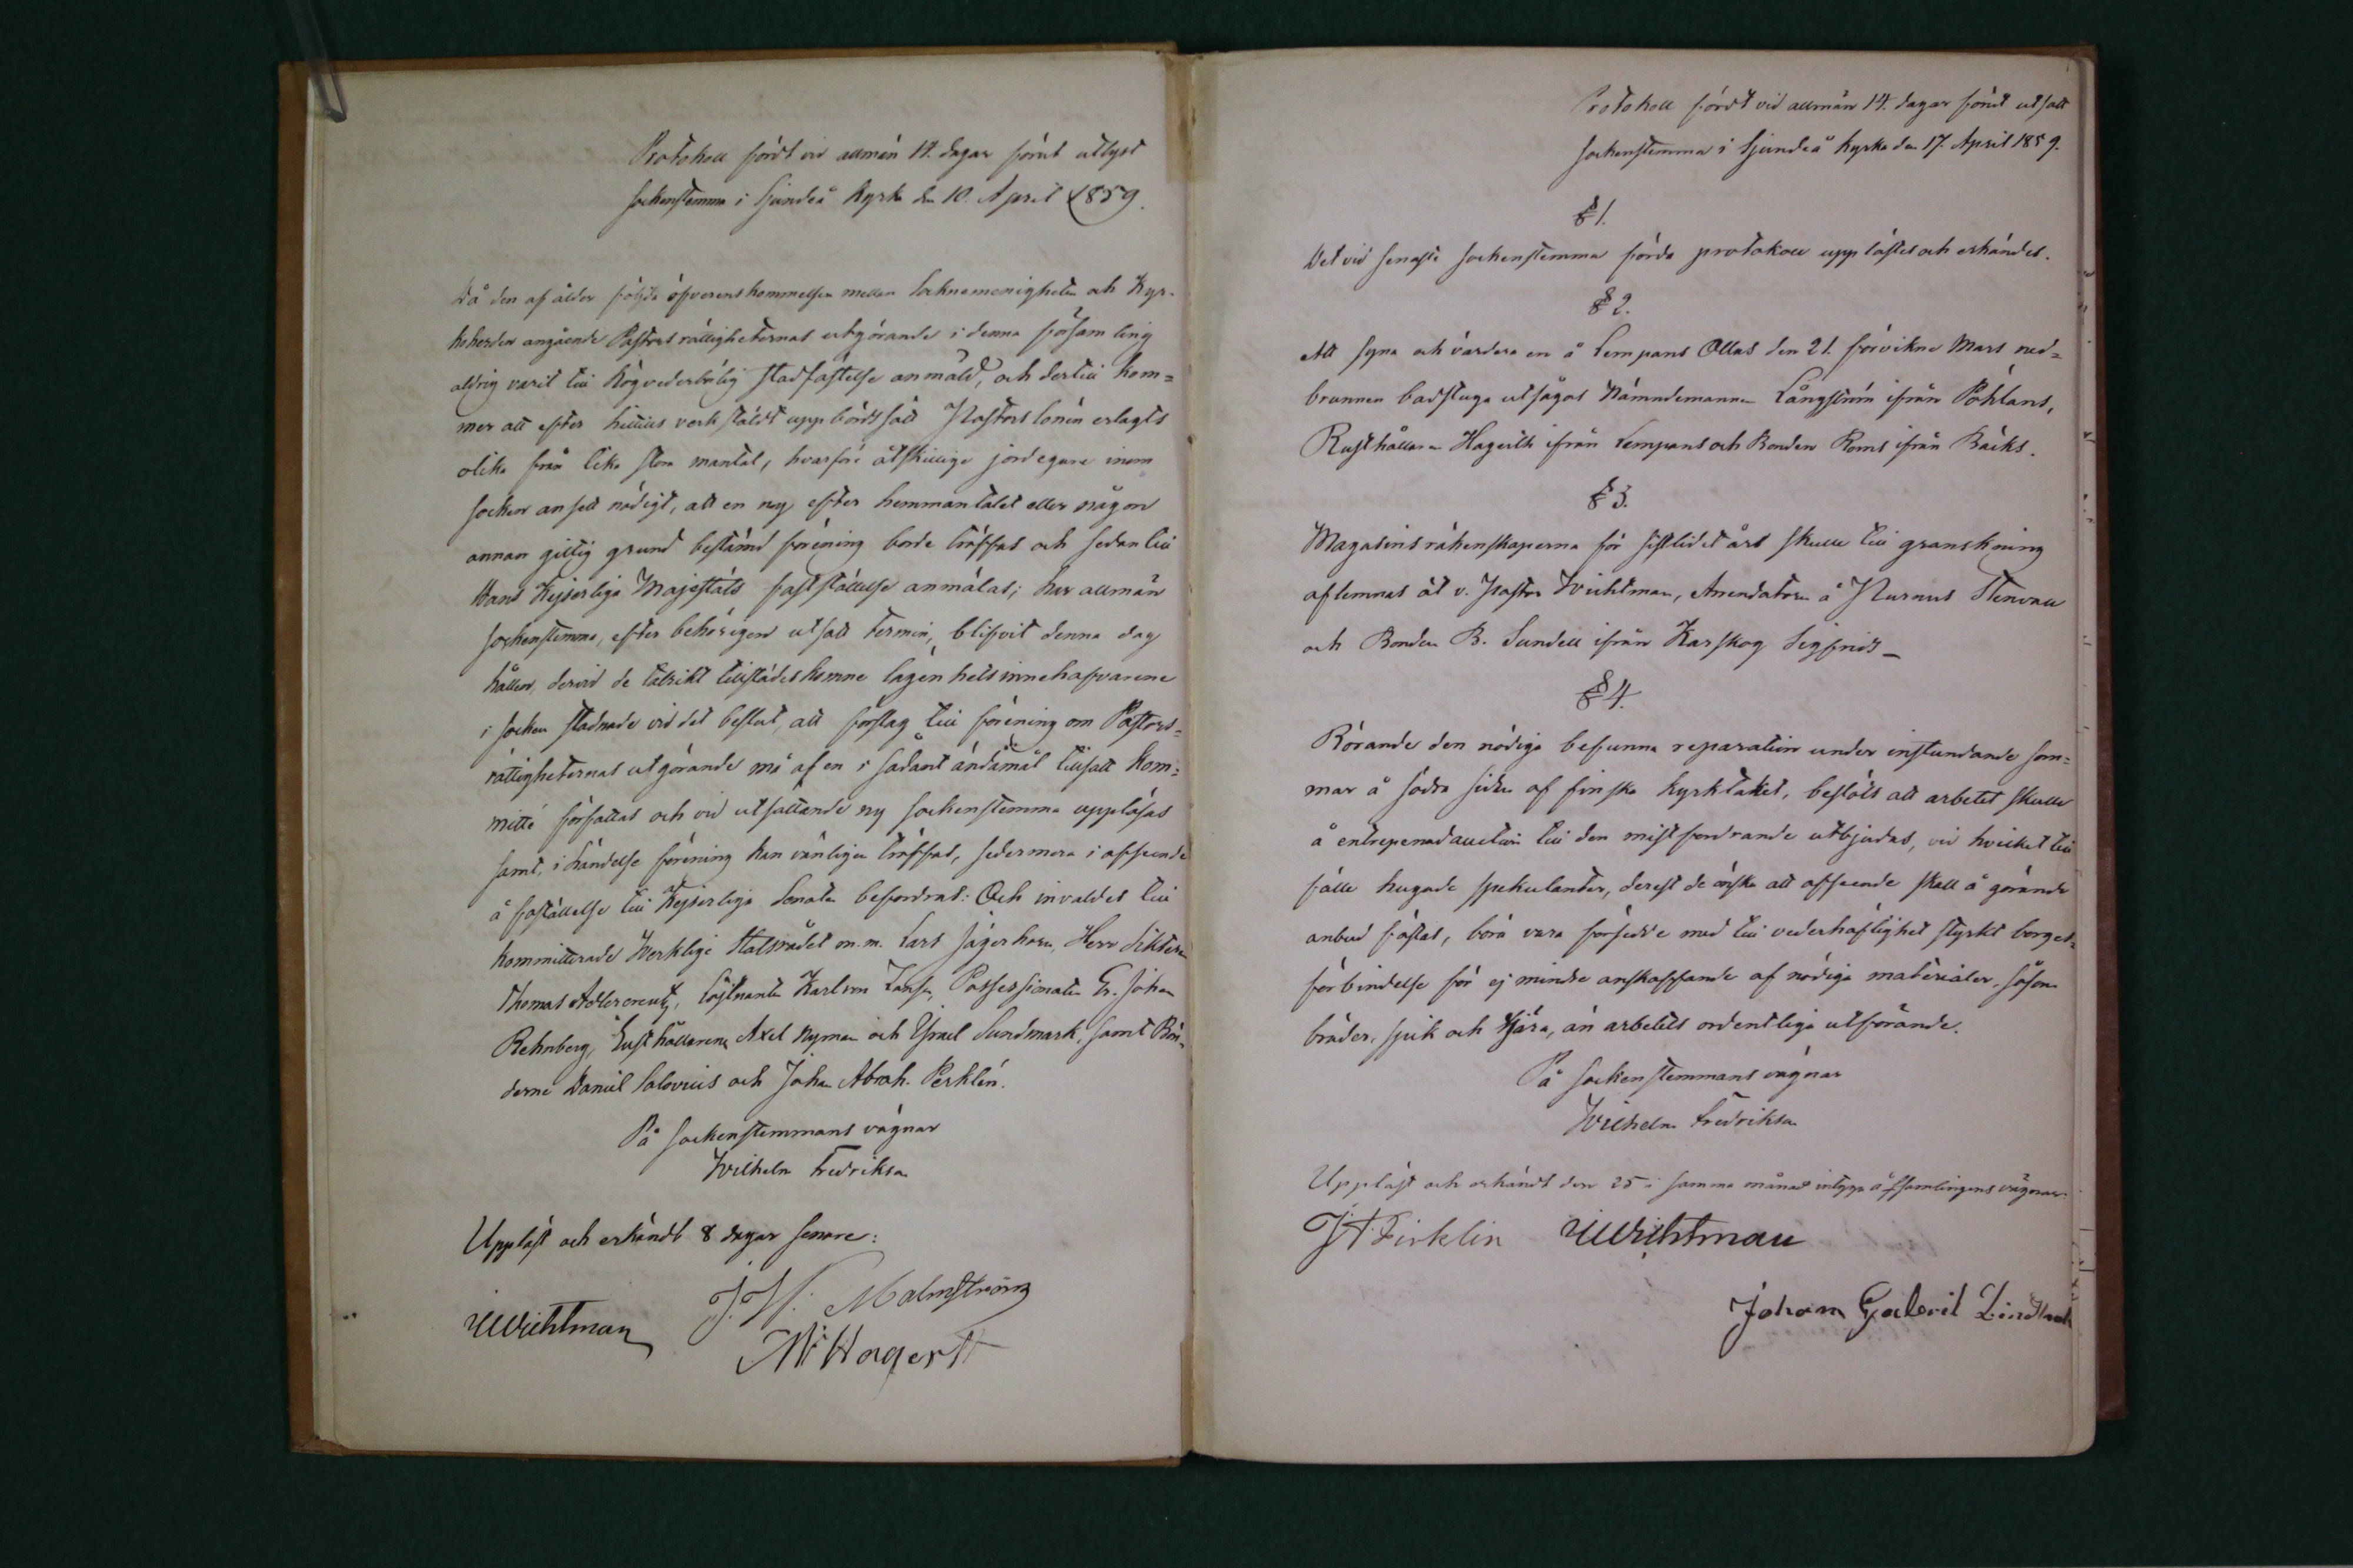 Protokoll fördt vid allmän 14. dagar förut utlyst
sockenstemma i Sjundeå kyrka den 10. April 1859.
Då den af ålder följda öfverenskommelsen mellan Socknemenigheten och Kyr-
koherden angående Pastorsrättigheternas utgörande i denna församling
aldrig varit till högvederbörlig stadfästelse anmäld, och dertill kom=
mer att efter hittills verkstäldt uppbördssätt Pastors lönen erlagts
olika från lika stora mantal, hvarföre åtskillige jordegare inom
socken ansett nödigt, att en ny, efter hemmantalet eller någon
annan giltig grund bestämd förening borde träffas och sedan till
Hans Kejserliga Majestäts fastställelse anmälas; har allmän
sockenstemma, efter behörigen utsatt termin, blifvit denna dag
hållen, dervid de talrikt tillstädeskomne lägenhetsinnehafvarene
i socken stadnade vid det beslut, att förslag till förening om Pastors=
rättigheternas utgörande må af en i sådant ändamål tillsatt Kom=
mitté författas och vid utsattande ny sockenstemma uppläsas
samt, i händelse förening kan vänligen träffas, sedermera i afseende
å faställelse till Kejserliga Senaten befordras: Och invaldes till
kommitterade Verklige Statsrådet m.m. Lars Jägerhorn, Herr
Thomas Adlercreutz, Löjtnanten Karl von Possessionaten G. Johan
Rehnberg, Rusthållarene Axel Nyman och Israel Sundmark, samt Bön-
derne Daniel Salovius och Johan Abrah. Perklén.
På sockenstemmans vägnar
Wilhelm Fredrikson
Uppläst och erkändt 8 dagar senare:
Wichtman
J. H. Malmström
Hagert
Protokoll fördt vid allmän 14. dagar förut utsatt
sockenstemma i Sjundeå kyrka den 17. April 1859.
§ 1.
Det vid senaste sockenstemma förda protokoll upplästes och erkändes.
§ 2.
Att syna och värdera en å Lempans Ollas den 21. förvikne Mars ned=
brunnen badstuga utsågos Nämndemannen Långström ifrån Pöhlans,
Rusthållaren Hagerth ifrån Lempans och Bonden Roms ifrån Bäcks.
§ 3.
Magasinsräkenskaperna för sistlidet års skulle till granskning
aflemnas åt v. Pastor Wichtman, Arrendatorn å Purnus Stenvall
och Bonden B. Sundell ifrån Karskog Sigfrids_
§ 4.
Rörande den nödiga befunna reparation under instundande som=
mar å södra sidan af finska kyrktaket, beslöts att arbetet skulle
å entreprenadauction till den minstfordrande utbjudas, vid hvilket till
fälle hugade spekulanter, derest de önska att afseende skall å görande
anbud fästas, böra vara försedde med till vederhäftighet styrkt borges-
förbindelse för ej mindre anskaffande af nödiga materialer, såsom
bräder, spik och tjära, än arbetets ordentliga utförande.
På sockenstemmans vägnar
Wilhelm Fredrikson
Uppläst och erkändt den 25 i samma månad intyga å församlingens vägnar:
Wichtman
Johan Gabriel